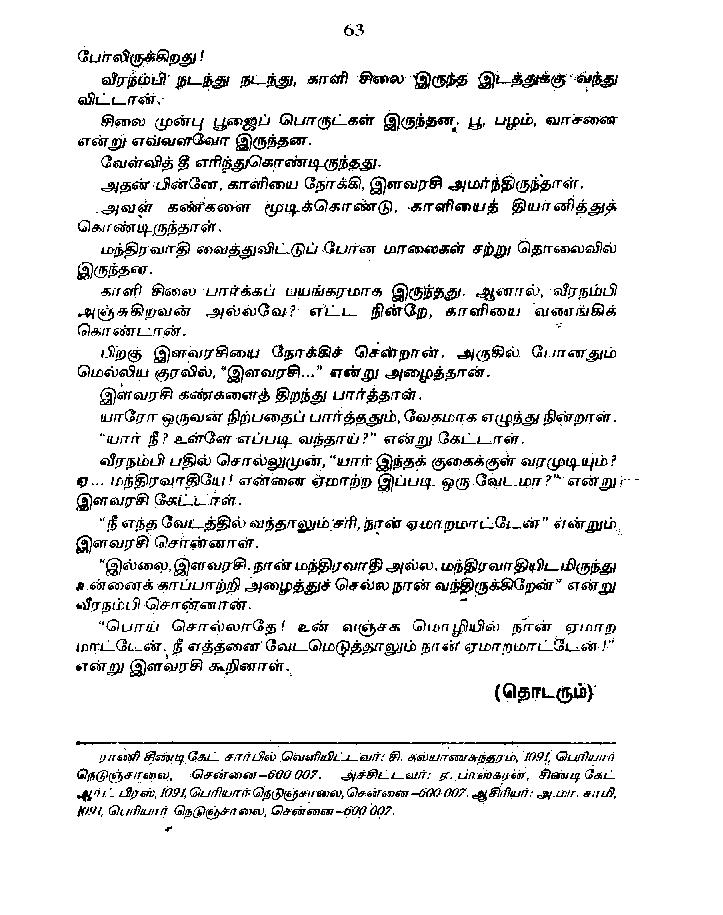 63
போலிருக்கிறது!
வீரநம்பி நடந்து நடந்து, காளி சிலை இருந்த இடத்துக்கு வந்து
விட்டான்.
சிலை முன்பு பூஜைப் பொருட்கள் இருந்தன. பூ, பழம், வாசனை
என்று எவ்வளவோ இருந்தன.
வேள்வித் தீ எரிந்துகொண்டிருந்தது.
அதன் பின்னே, காளியை நோக்கி, இளவரசி அமர்ந்திருந்தாள்.
அவள் கண்களை மூடிக்கொண்டு, காளியைத் தியானித்துக்
கொண்டிருந்தாள்.
மந்திரவாதி வைத்துவிட்டுப் போன மாலைகள் சற்று தொலைவில்
இருந்தன.
காளி சிலை பார்க்கப் பயங்கரமாக இருந்தது. ஆனால், வீரநம்பி
அஞ்சுகிறவன் அல்லவே? எட்ட நின்றே, காளியை வணங்கிக்
கொண்டான்.
பிறகு இளவரசியை நோக்கிச் சென்றான். அருகில் போனதும்
மெல்லிய குரலில், "இளவரசி..." என்று அழைத்தான்.
இளவரசி கண்களைத் திறந்து பார்த்தாள்.
யாரோ ஒருவன் நிற்பதைப் பார்த்ததும், வேகமாக எழுந்து நின்றாள்.
"யார் நீ? உள்ளே எப்படி வந்தாய்?" என்று கேட்டாள்.
வீரநம்பி பதில் சொல்லுமுன், "யார் இந்தக் குகைக்குள் வரமுடியும்?
ஏ... மந்திரவாதியே! என்னை ஏமாற்ற இப்படி ஒரு வேடமா?" என்று
இளவரசி கேட்டாள்.
"நீ எந்த வேடத்தில் வந்தாலும் சரி, நான் ஏமாறமாட்டேன்" என்றும்
இளவரசி சொன்னாள்.
"இல்லை, இளவரசி. நான் மந்திரவாதி அல்ல. மந்திரவாதியிடமிருந்து
உன்னைக் காப்பாற்றி அழைத்துச் செல்ல நான் வந்திருக்கிறேன்" என்று
வீரநம்பி சொன்னான்.
"பொய் சொல்லாதே! உன் வஞ்சக மொழியில் நான் ஏமாற
மாட்டேன். நீ எத்தனை வேடமெடுத்தாலும் நான் ஏமாறமாட்டேன்!"
என்று இளவரசி கூறினாள்.
(தொடரும்)
ராணி சிண்டிகேட் சார்பில் வெளியிட்டவர்: சி. கல்யாணசுந்தரம், 1091, பெரியார்
நெடுஞ்சாலை, சென்னை-600 007. அச்சிட்டவர்: ஏ. பாஸ்கரன், சிண்டிகேட்
ஆர்ட் பிரஸ், 1091, பெரியார் நெடுஞ்சாலை, சென்னை-600 007. ஆசிரியர்: அ.மா. சாமி,
1091, பெரியார் நெடுஞ்சாலை, சென்னை-600 007.